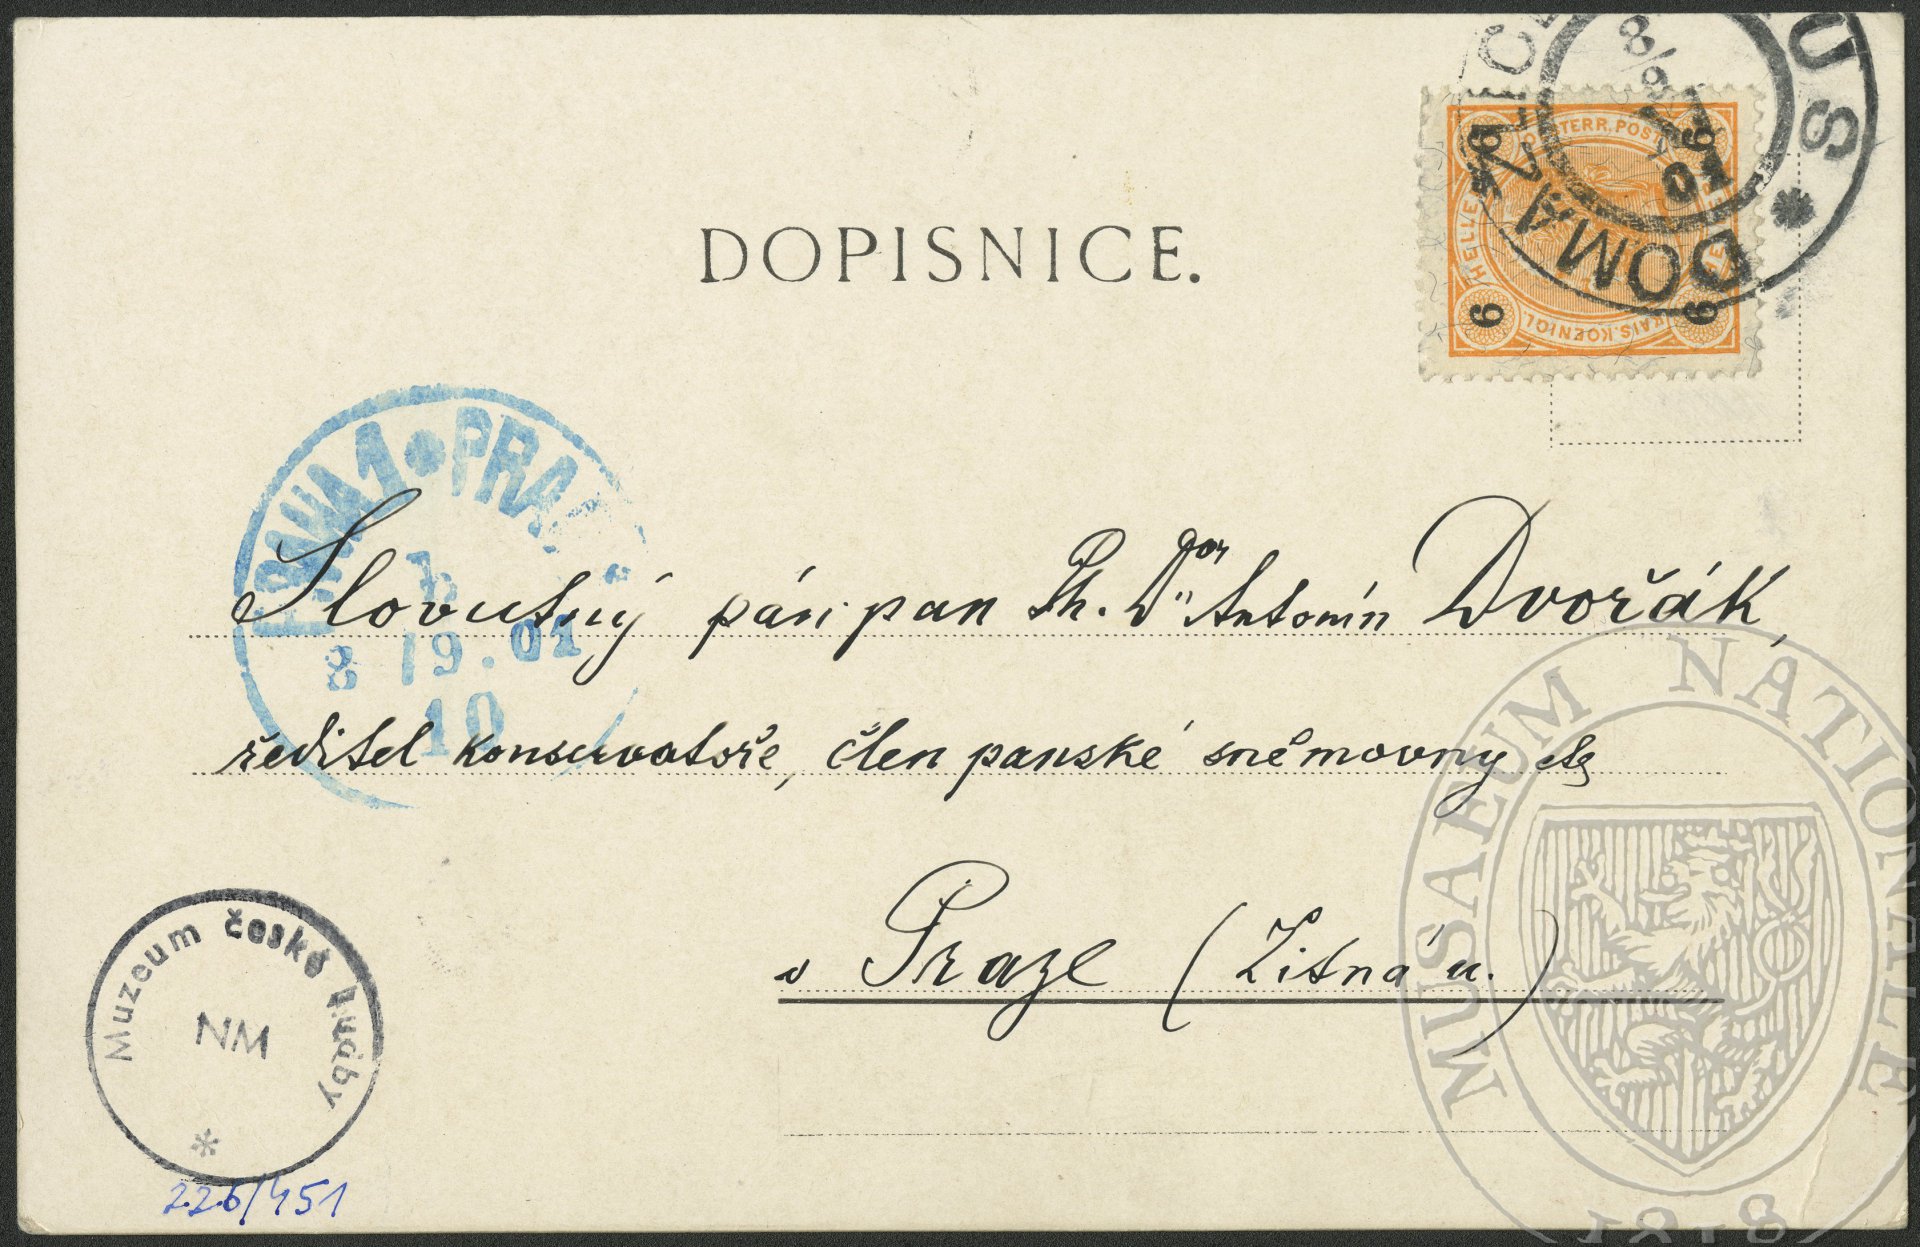 DOPISNICE.
DOMAŽLICE
TAUS
8/9
01
OESTERR. POST
HELLER
KAIS. KOENIGL.
6 6
6 6
PRAHA 1 * PRAG
8/9.01
10
Slovutný pán pan Ph. Dor Antonín Dvořák,
ředitel konservatoře, člen panské sněmovny etc
v Praze (Žitná u.)
Muzeum české hudby
NM
226/451
MUSAEUM NATIONALE
1818